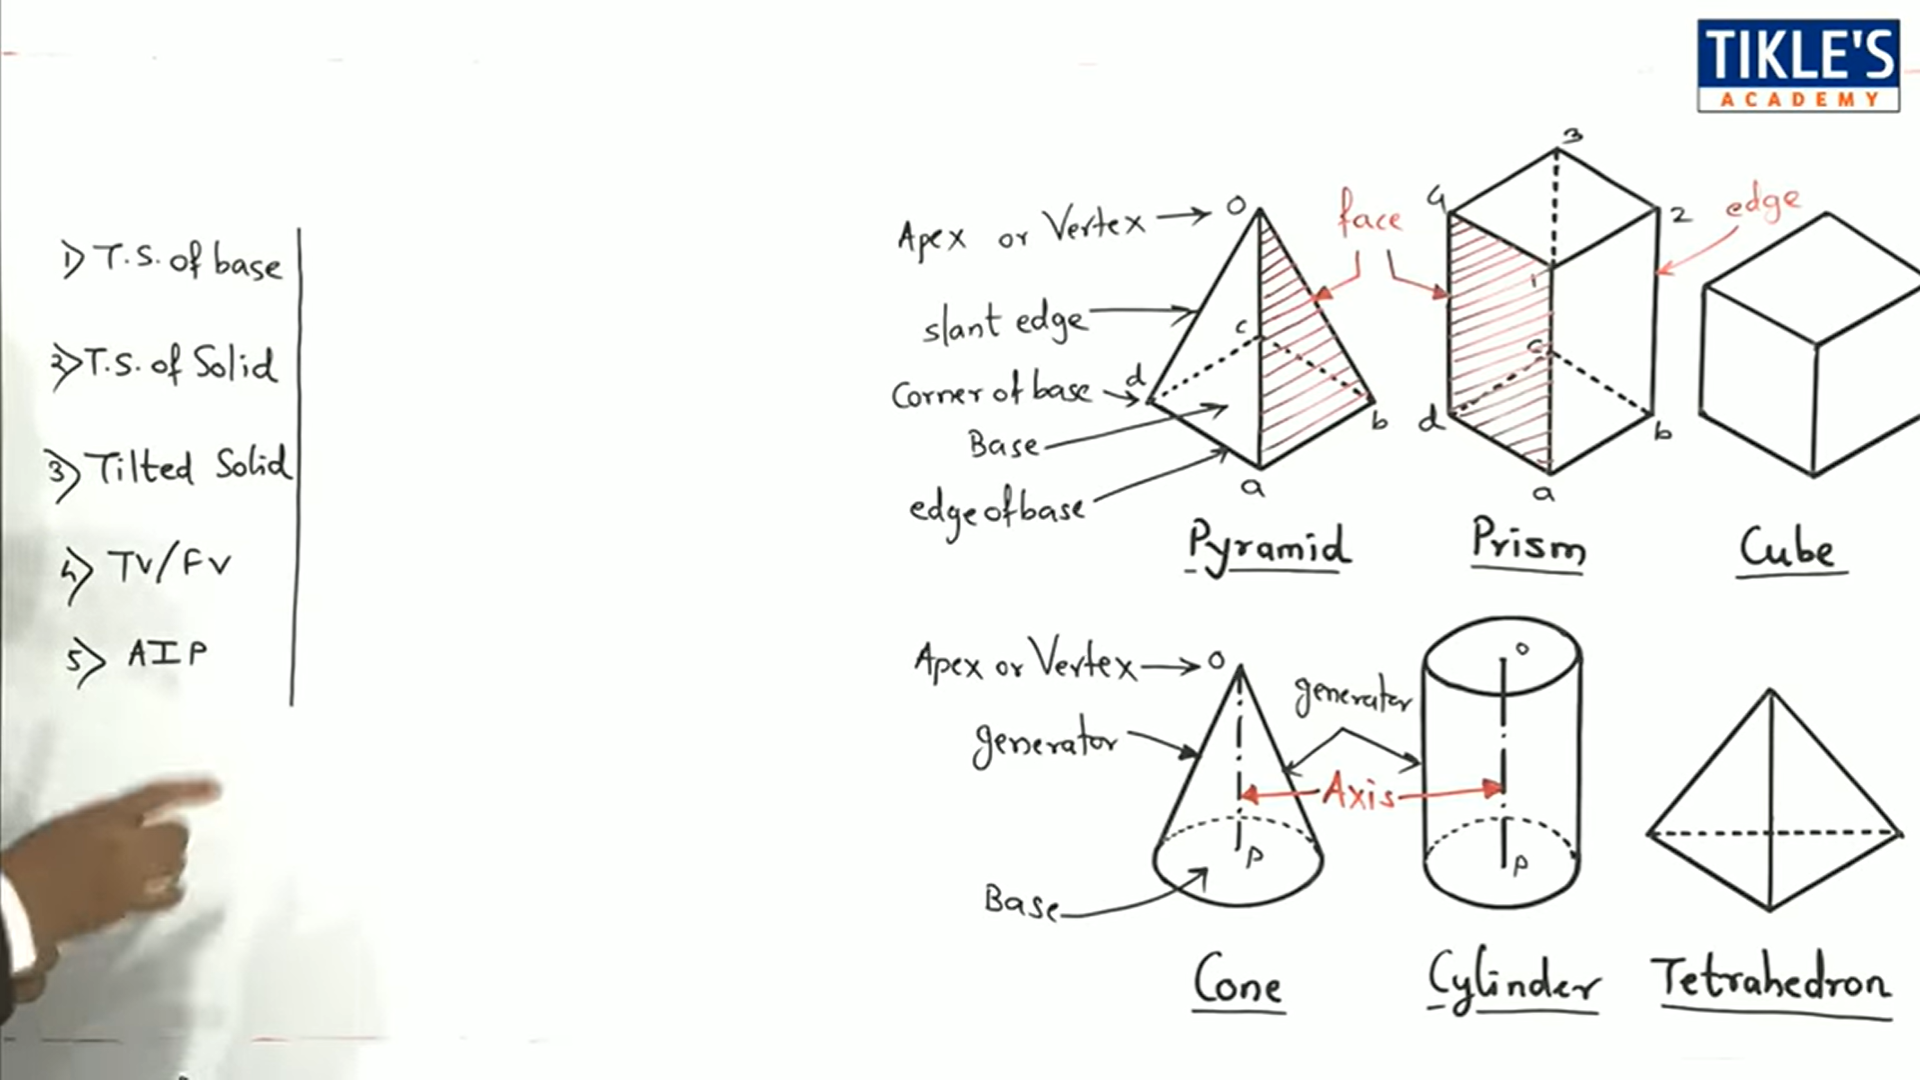 TIKLE'S
ACADEMY
1) T.S. of base
2) T.S. of Solid
3) Tilted Solid
4) TV/FV
5) AIP
Apex or Vertex
O
slant edge
Corner of base
d
c
Base
edge of base
a
b
Pyramid
face
4
3
2
1
edge
c
d
b
a
Prism
Cube
Apex or Vertex
O
generator
generator
Axis
P
Base
Cone
O
P
Cylinder
Tetrahedron